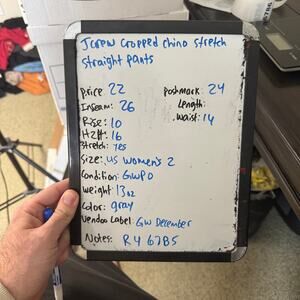 Jcrew cropped chino stretch
straight pants
Price 22
Poshmark: 24
Inseam: 26
Length:
Rise: 10
Waist: 14
H2H: 16
Stretch: Yes
Size: US women's 2
Condition: GWPO
Weight 13oz
Color: gray
Vendoo Label: GW December
Notes: R4 67B5